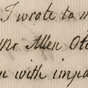 I wrote to m
Mr Allen Ot
n with impa